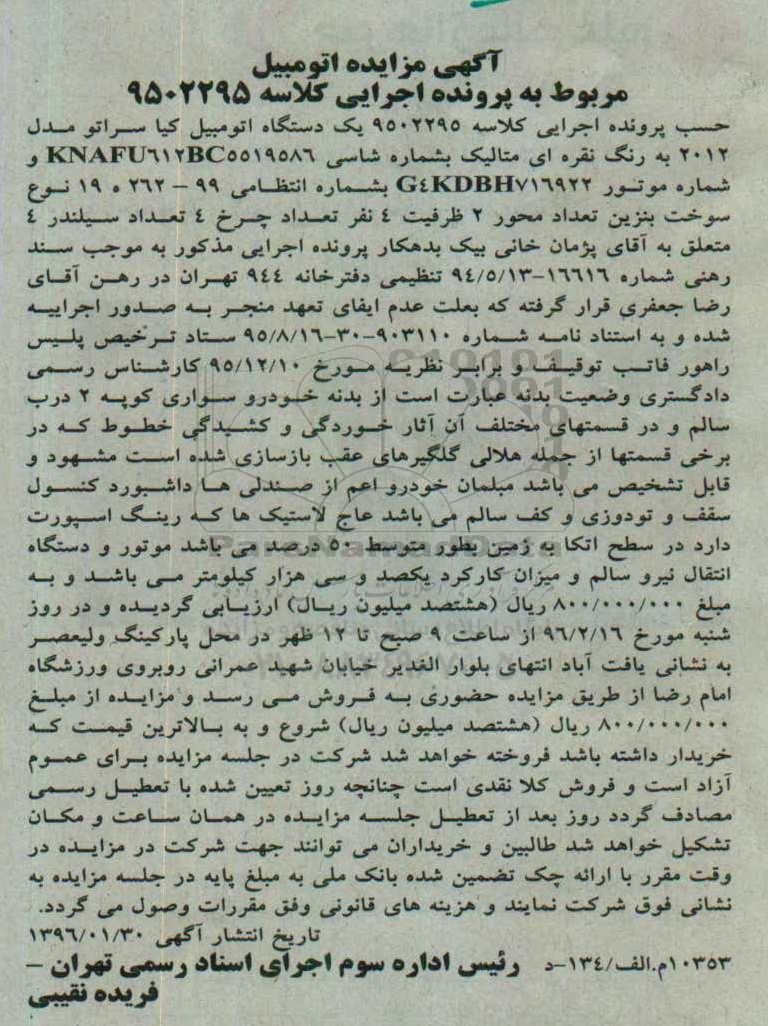 آگهی مزایده اتومبیل
مربوط به پرونده اجرایی کلاسه ۹۵۰۲۲۹۵
حسب پرونده اجرایی کلاسه ۹۵۰۲۲۹۵ یک دستگاه اتومبیل کیا سراتو مدل
۲۰۱۲ به رنگ نقره ای متالیک بشماره شاسی KNAFU۶۱۲BC۵۵۱۹۵۸۶ و
شماره موتور G٤KDBH۷۱۶۹۲۲ بشماره انتظامی ۹۹ – ۲۶۲ ه ۱۹ نوع
سوخت بنزین تعداد محور ۲ ظرفیت ٤ نفر تعداد چرخ ٤ تعداد سیلندر ٤
متعلق به آقای پژمان خانی بیک بدهکار پرونده اجرایی مذکور به موجب سند
رهنی شماره ۱۶۶۱۶-۹٤/۵/۱۳ تنظیمی دفترخانه ۹٤٤ تهران در رهن آقای
رضا جعفری قرار گرفته که بعلت عدم ایفای تعهد منجر به صدور اجراییه
شده و به استناد نامه شماره ۹۰۳۱۱۰-۳۰-۹۵/۸/۱۶ ستاد ترخیص پلیس
راهور فاتب توقیف و برابر نظریه مورخ ۹۵/۱۲/۱۰ کارشناس رسمی
دادگستری وضعیت بدنه عبارت است از بدنه خودرو سواری کوپه ۲ درب
سالم و در قسمتهای مختلف آن آثار خوردگی و کشیدگی خطوط که در
برخی قسمتها از جمله هلالی گلگیرهای عقب بازسازی شده است مشهود و
قابل تشخیص می باشد مبلمان خودرو اعم از صندلی ها داشبورد کنسول
سقف و تودوزی و کف سالم می باشد عاج لاستیک ها که رینگ اسپورت
دارد در سطح اتکا به زمین بطور متوسط ۵۰ درصد می باشد موتور و دستگاه
انتقال نیرو سالم و میزان کارکرد یکصد و سی هزار کیلومتر می باشد و به
مبلغ ۸۰۰/۰۰۰/۰۰۰ ریال (هشتصد میلیون ریال) ارزیابی گردیده و در روز
شنبه مورخ ۹۶/۲/۱۶ از ساعت ۹ صبح تا ۱۲ ظهر در محل پارکینگ ولیعصر
به نشانی یافت آباد انتهای بلوار الغدیر خیابان شهید عمرانی روبروی ورزشگاه
امام رضا از طریق مزایده حضوری به فروش می رسد و مزایده از مبلغ
۸۰۰/۰۰۰/۰۰۰ ریال (هشتصد میلیون ریال) شروع و به بالاترین قیمت که
خریدار داشته باشد فروخته خواهد شد شرکت در جلسه مزایده برای عموم
آزاد است و فروش کلا نقدی است چنانچه روز تعیین شده با تعطیل رسمی
مصادف گردد روز بعد از تعطیل جلسه مزایده در همان ساعت و مکان
تشکیل خواهد شد طالبین و خریداران می توانند جهت شرکت در مزایده در
وقت مقرر با ارائه چک تضمین شده بانک ملی به مبلغ پایه در جلسه مزایده به
نشانی فوق شرکت نمایند و هزینه های قانونی وفق مقررات وصول می گردد.
تاریخ انتشار آگهی ۱۳۹۶/۰۱/۳۰
۱۰۳۵۳م.الف/۱۳٤-د رئیس اداره سوم اجرای اسناد رسمی تهران –
فریده نقیبی